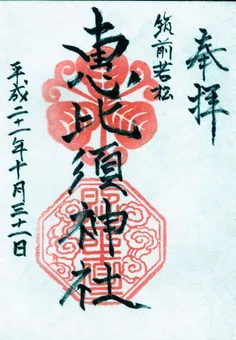 奉拝
筑前若松
恵比須神社
平成二十一年十月三十一日